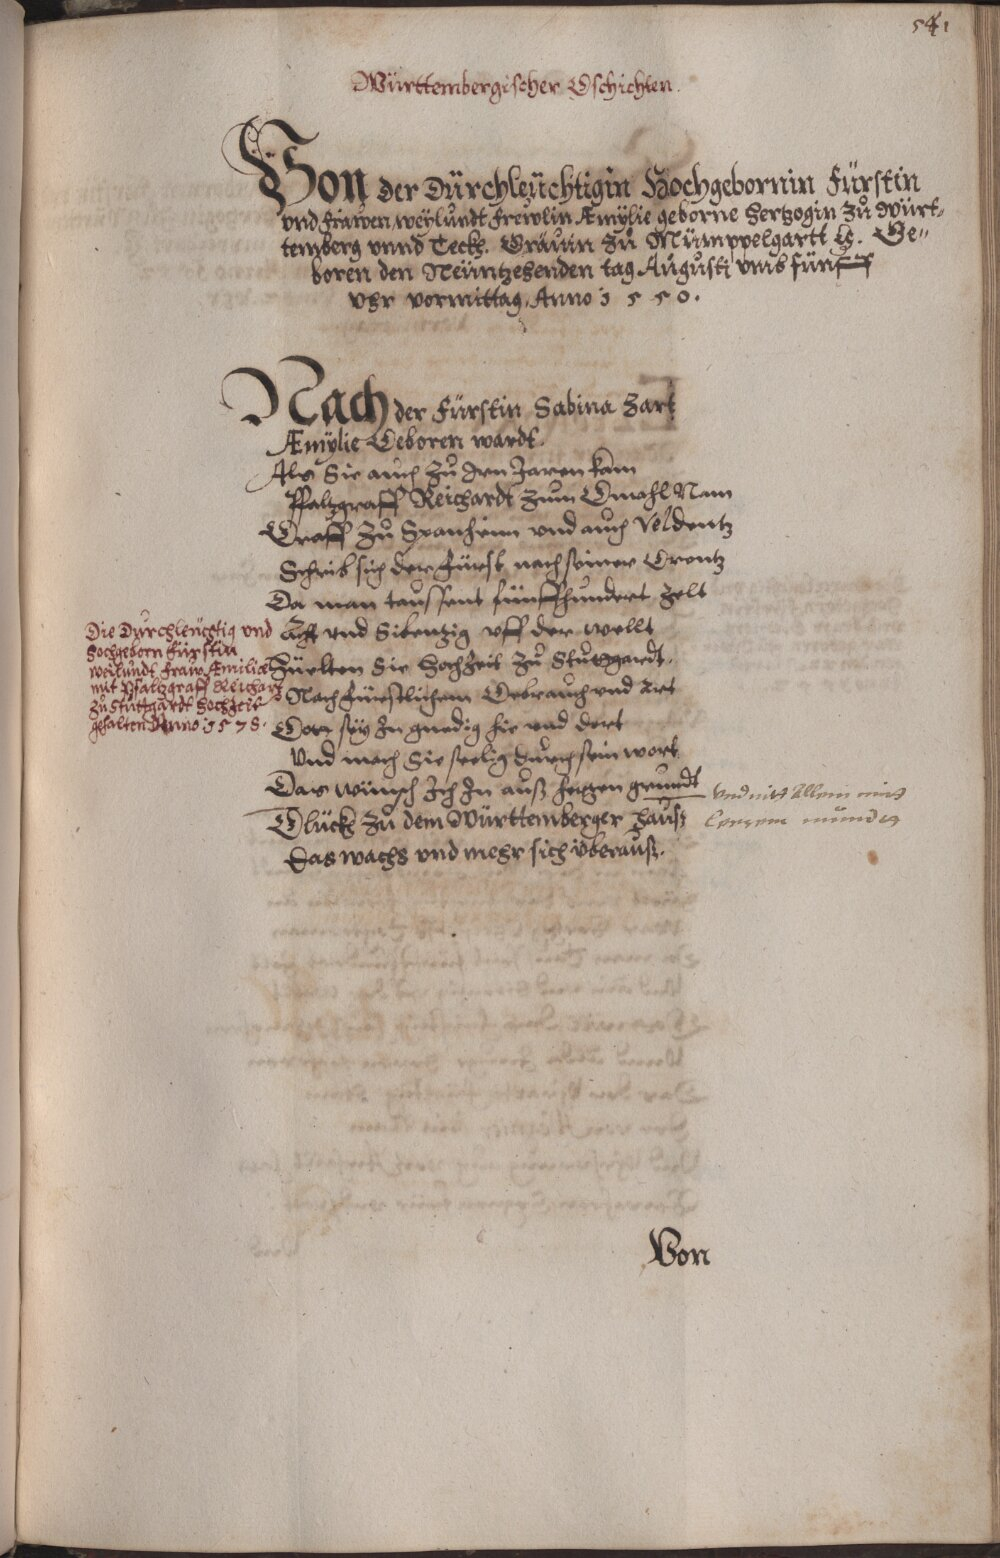 541
Württembergischer Gschichten.
Von der Dürchleüchtigin Hochgebornin Fürstin
vnd frawen, weylundt frewlin Æmÿlie geborne Hertzogin Zů Würt-
temberg vnnd Teckh. Grävin Zů Mümppelgartt &c. Ge"
boren den Neüntzehenden tag Augusti vmb fünff
vhr vormittag, Anno 1550.
Nach der Fürstin Sabina Zart
Æmÿlie Geboren wardt.
Als Sie auch Zů den Jaren kam
Pfaltzgraff Reichardt Zum Gmahl Nam
Graff Zů Spanheim vnd auch Veldentz
Schrib sich der Fürst nach seiner Grentz
Da man taussent fünffhundert Zelt
Acht vnd Sibentzig vff der wellt
Hüelten Sie Hochzeit Zů Stuttgardt.
Nach Fürstlichem Gebrauch vnd Art
Gott seÿ Jn gnedig hie vnd dort
Vnd mach Sie seelig durch sein wort
Das wünsch Jch Jn auß hertzen grundt
Glückh Zů dem Württemberger Hauß
Das wachs vnd mehr sich überauß.
Die Dürchleüchtig vnd
Hochgeborn Fürstin
weilundt fraw Æmilia
mit Pfaltzgraff Reichart
Zů Stuttgardt Hochzeit
gehalten Anno 1578.
vnd nitt allein mitt
Leerem mundt
Von